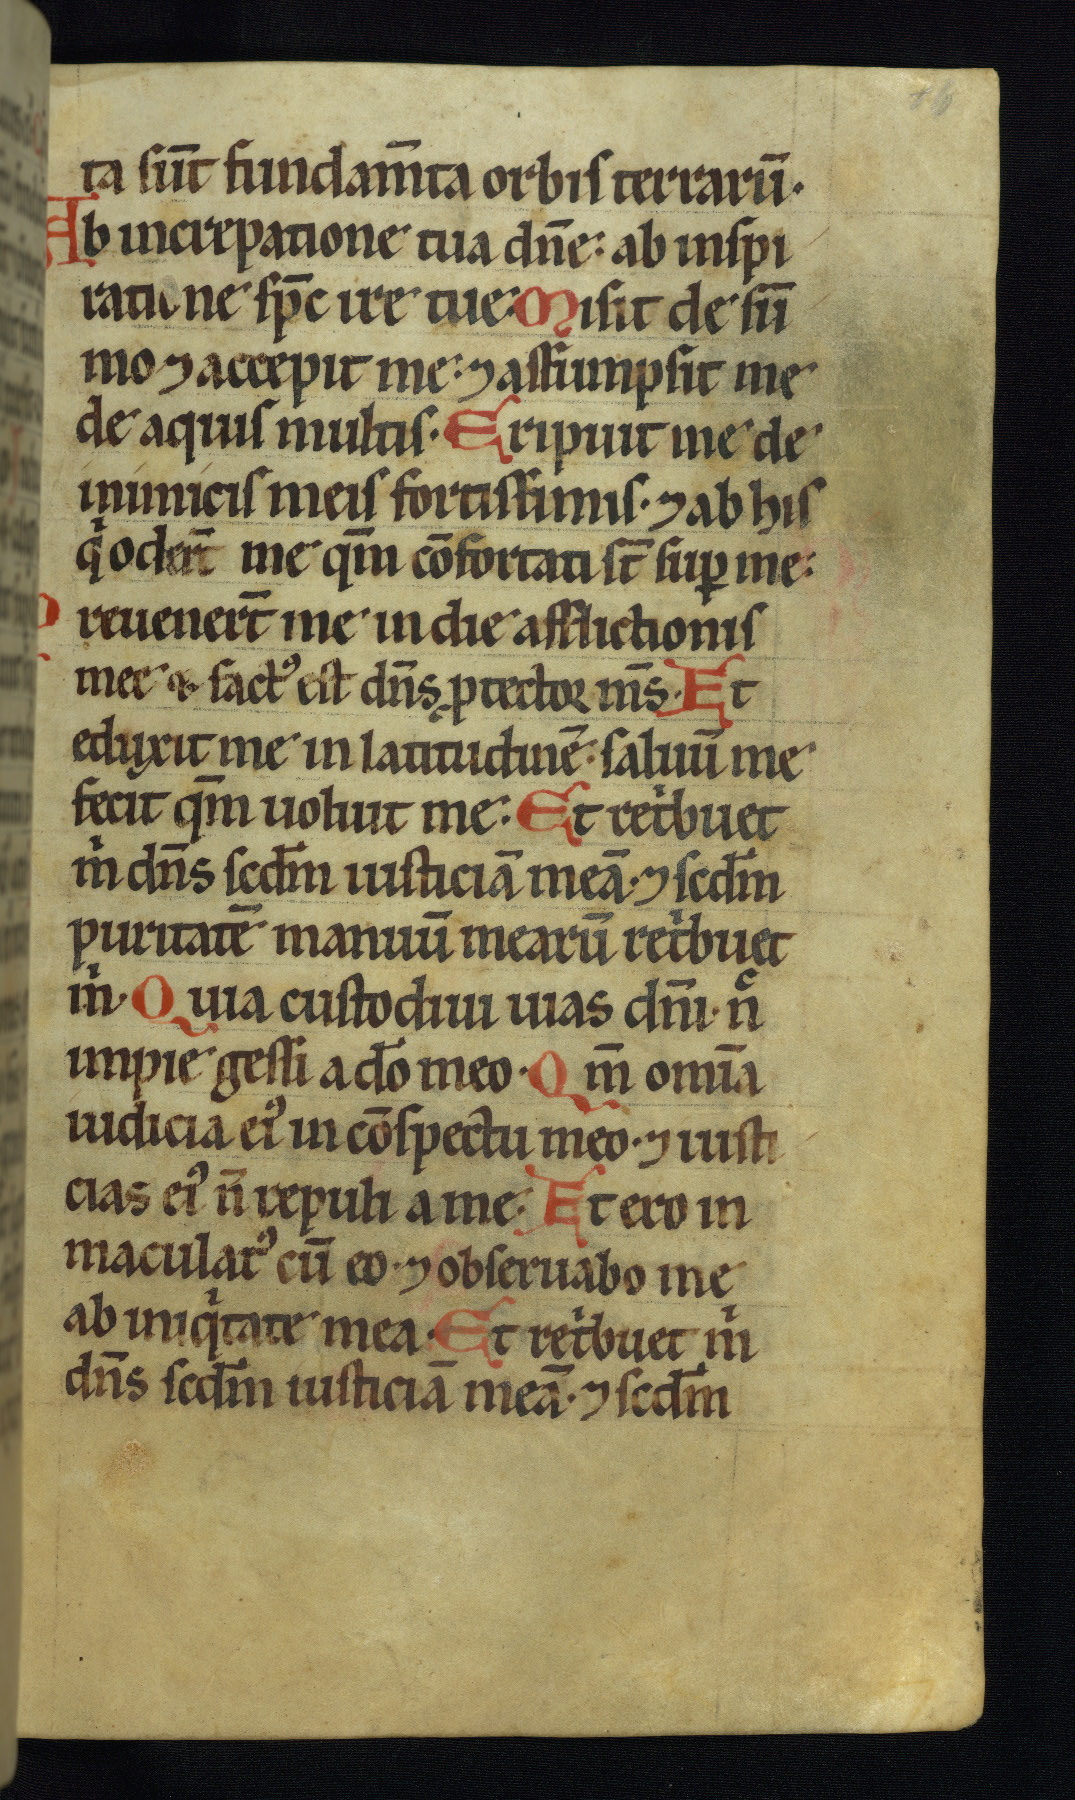 ta sūt fundam̄ta orbis terrarū·
Ab increpatione tua dn̄e: ab inspi
rati ne sp̄c ire tue· Misit de sū
mo ⁊ accepit me: ⁊ assumpsit me
de aquis multis· Eripuit me de
inimicis meis fortissimis· ⁊ ab his
qͥ oder̄t me qm̄ cōfortati st̄ suꝑ me:
Preuener̄t me in die afflictionis
mee & factꝰ est dn̄s ꝓtector m̄s· Et
eduxit me in latitudinē· saluū me
fecit qm̄ uoluit me: Et retͥbuet
m̄ͥ dn̄s scdm̄ iusticiā meā· ⁊ scdm̄
puritatē manuū mearū retͥbuet
m̄ͥ· Quia custodiui uias dn̄i· nͨ
impie gessi a do̅ meo· Qm̄ omīa
iudicia eiꝰ in cōspectu meo· ⁊ iusti
cias eiꝰ n̄ repuli a me: Et ero in
maculatꝰ cū eo· ⁊ obseruabo me
ab iniqͥtate mea· Et retͥbuet m̄ͥ
dn̄s scdm̄ iusticiā meā· ⁊ scdm̄